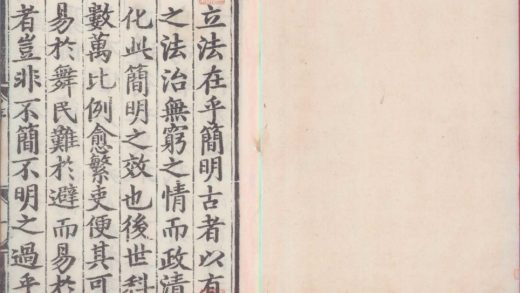 立法在乎簡明古者以有
之法治無窮之情而政清
化此簡明之效也後世科
數萬比例愈繁吏便其可
易於舞民難於避而易於
者豈非不簡不明之過乎